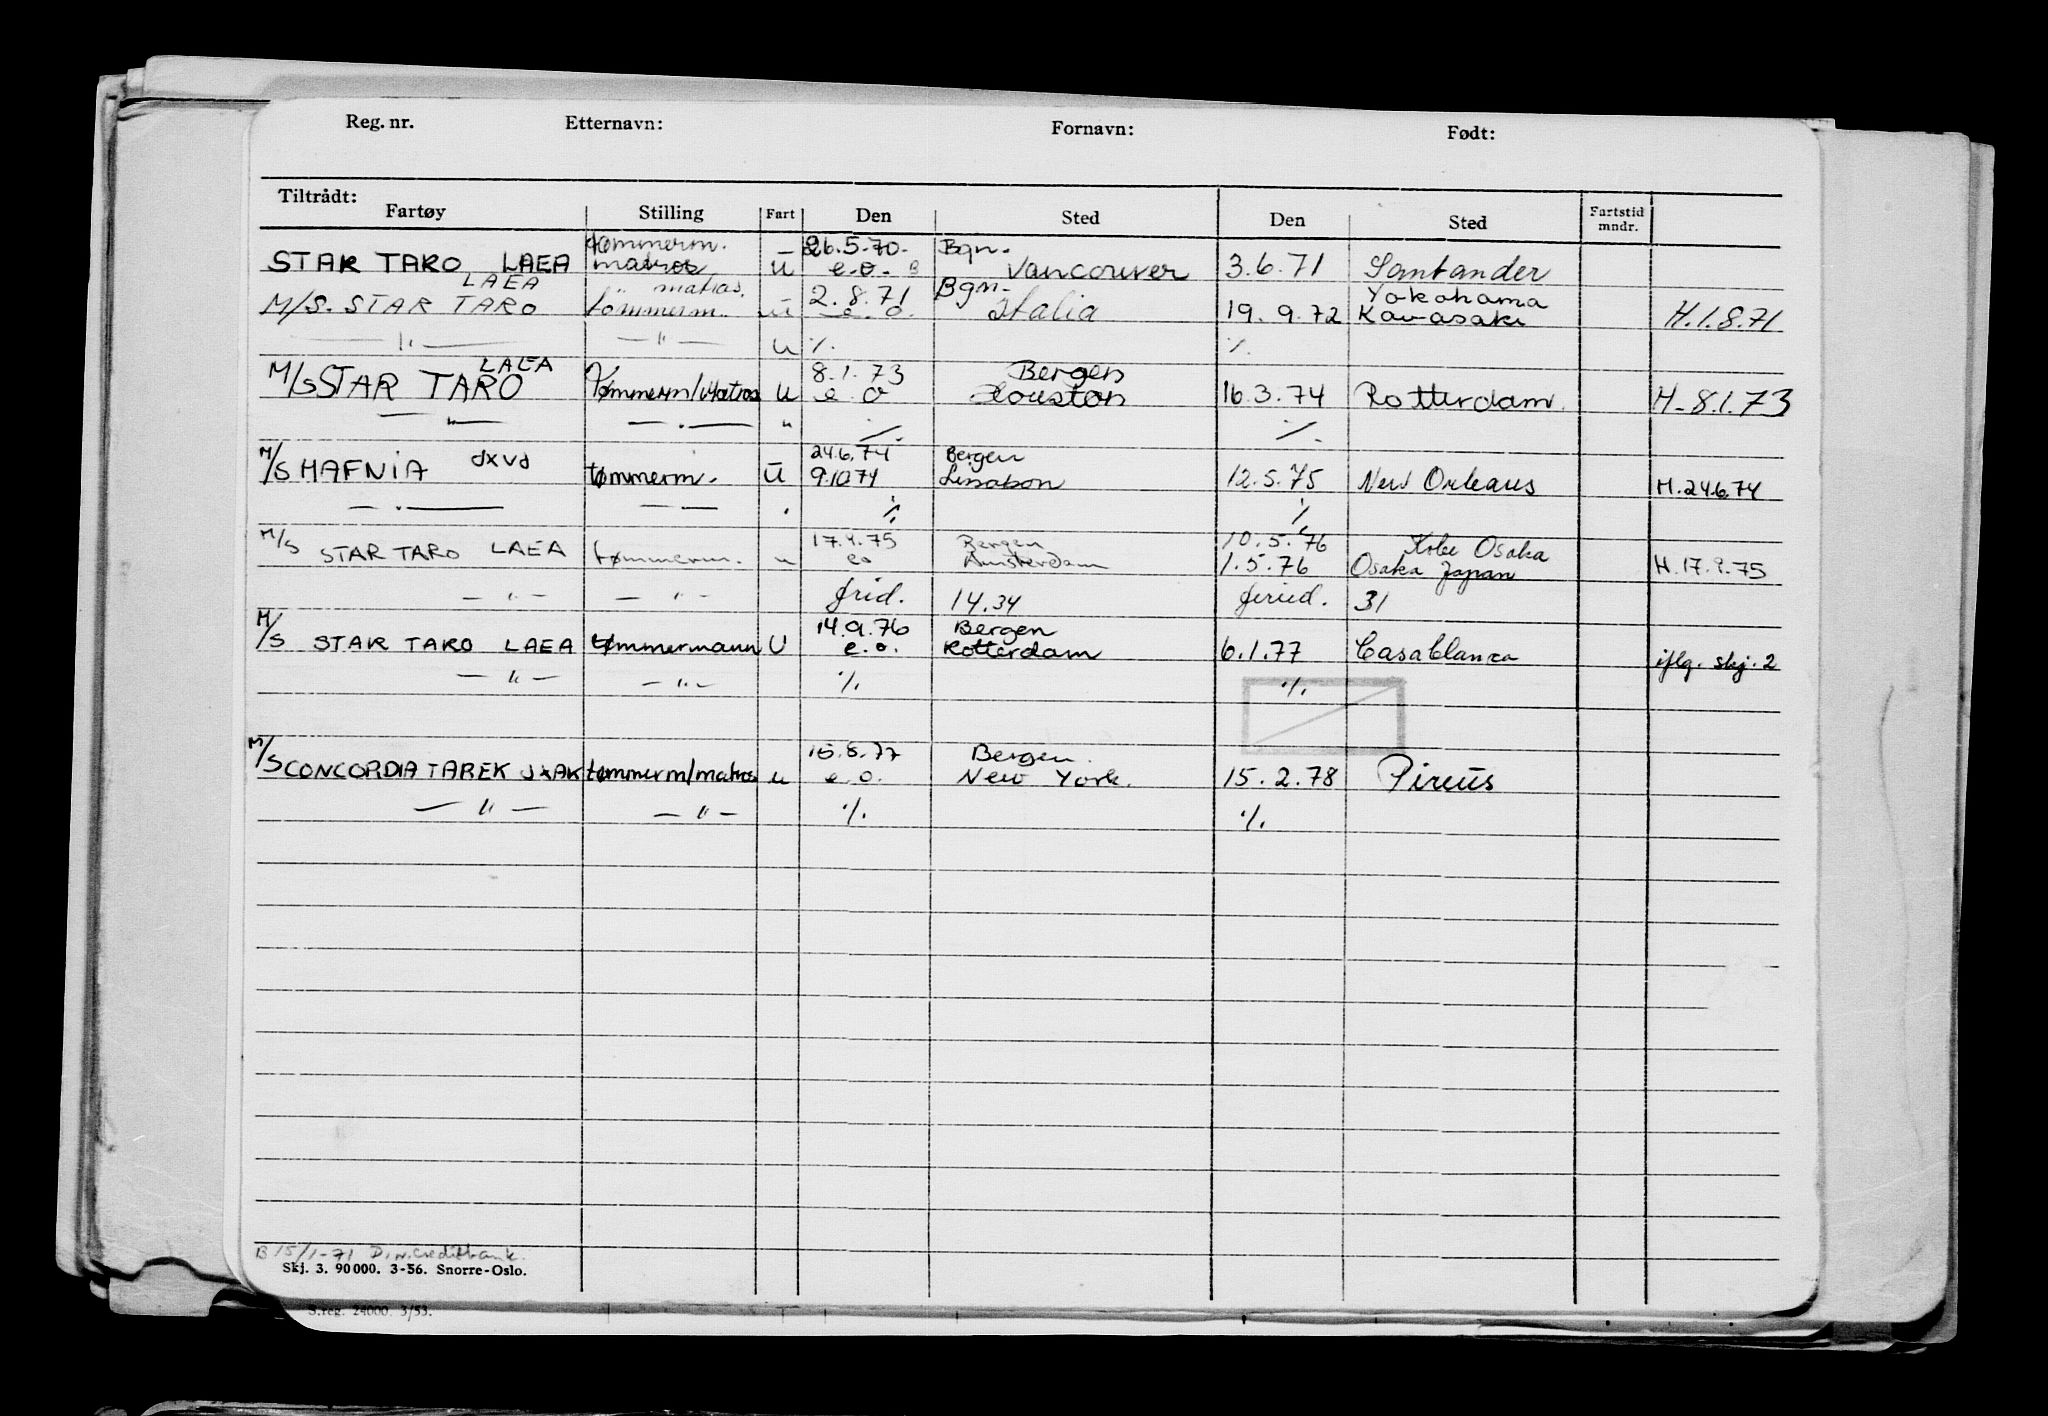 Reg. nr. Etternavn: Fornavn: Født:
Tiltrådt:
Fartøy Stilling Fart Den Sted Den Sted Fartstid mndr.
tømmerm. 26.5.70. Bgn.
STAR TARO LAEA matros u e.o. B Vancouver 3.6.71 Santander
LAEA " matros. 2.8.71 Bgn. Yokohama
M/S. STAR TARO tømmerm. u e.o. Italia 19.9.72 Kawasaki H.1.8.71
— " — — " — u ·/. ·/.
LAEA 8.1.73 Bergen
M/S STAR TARO Tømmerm/Matros u e o Houston 16.3.74 Rotterdam. H-8.1.73
— " — — " — " ·/. ·/.
24.6.74 Bergen
M/S HAFNIA JXVJ tømmerm. U 9.10.74 Lissabon 12.5.75 New Orleans H.24.6.74
— " — — — ·/. ·/.
17.9.75 Bergen 10.5.76 Kobe Osaka
M/S STAR TARO LAEA tømmerm. u eo Amsterdam 1.5.76 Osaka Japan H.17.9.75
— " — — " — 14.34 31
14.9.76 Bergen
M/S STAR TARO LAEA tømmermann U e.o. Rotterdam 6.1.77 Casablanca iflg. skj. 2
— " — — " — ·/. ·/.
15.8.77 Bergen.
M/S CONCORDIA TAREK JXAK tømmerm/matros u e.o. New York. 15.2.78 Pireus
— " — — " — ·/. ·/.
B 15/1-71 D.n. Creditbank.
Skj. 3. 90000. 3-56. Snorre-Oslo.
S.reg. 24000. 3/53.